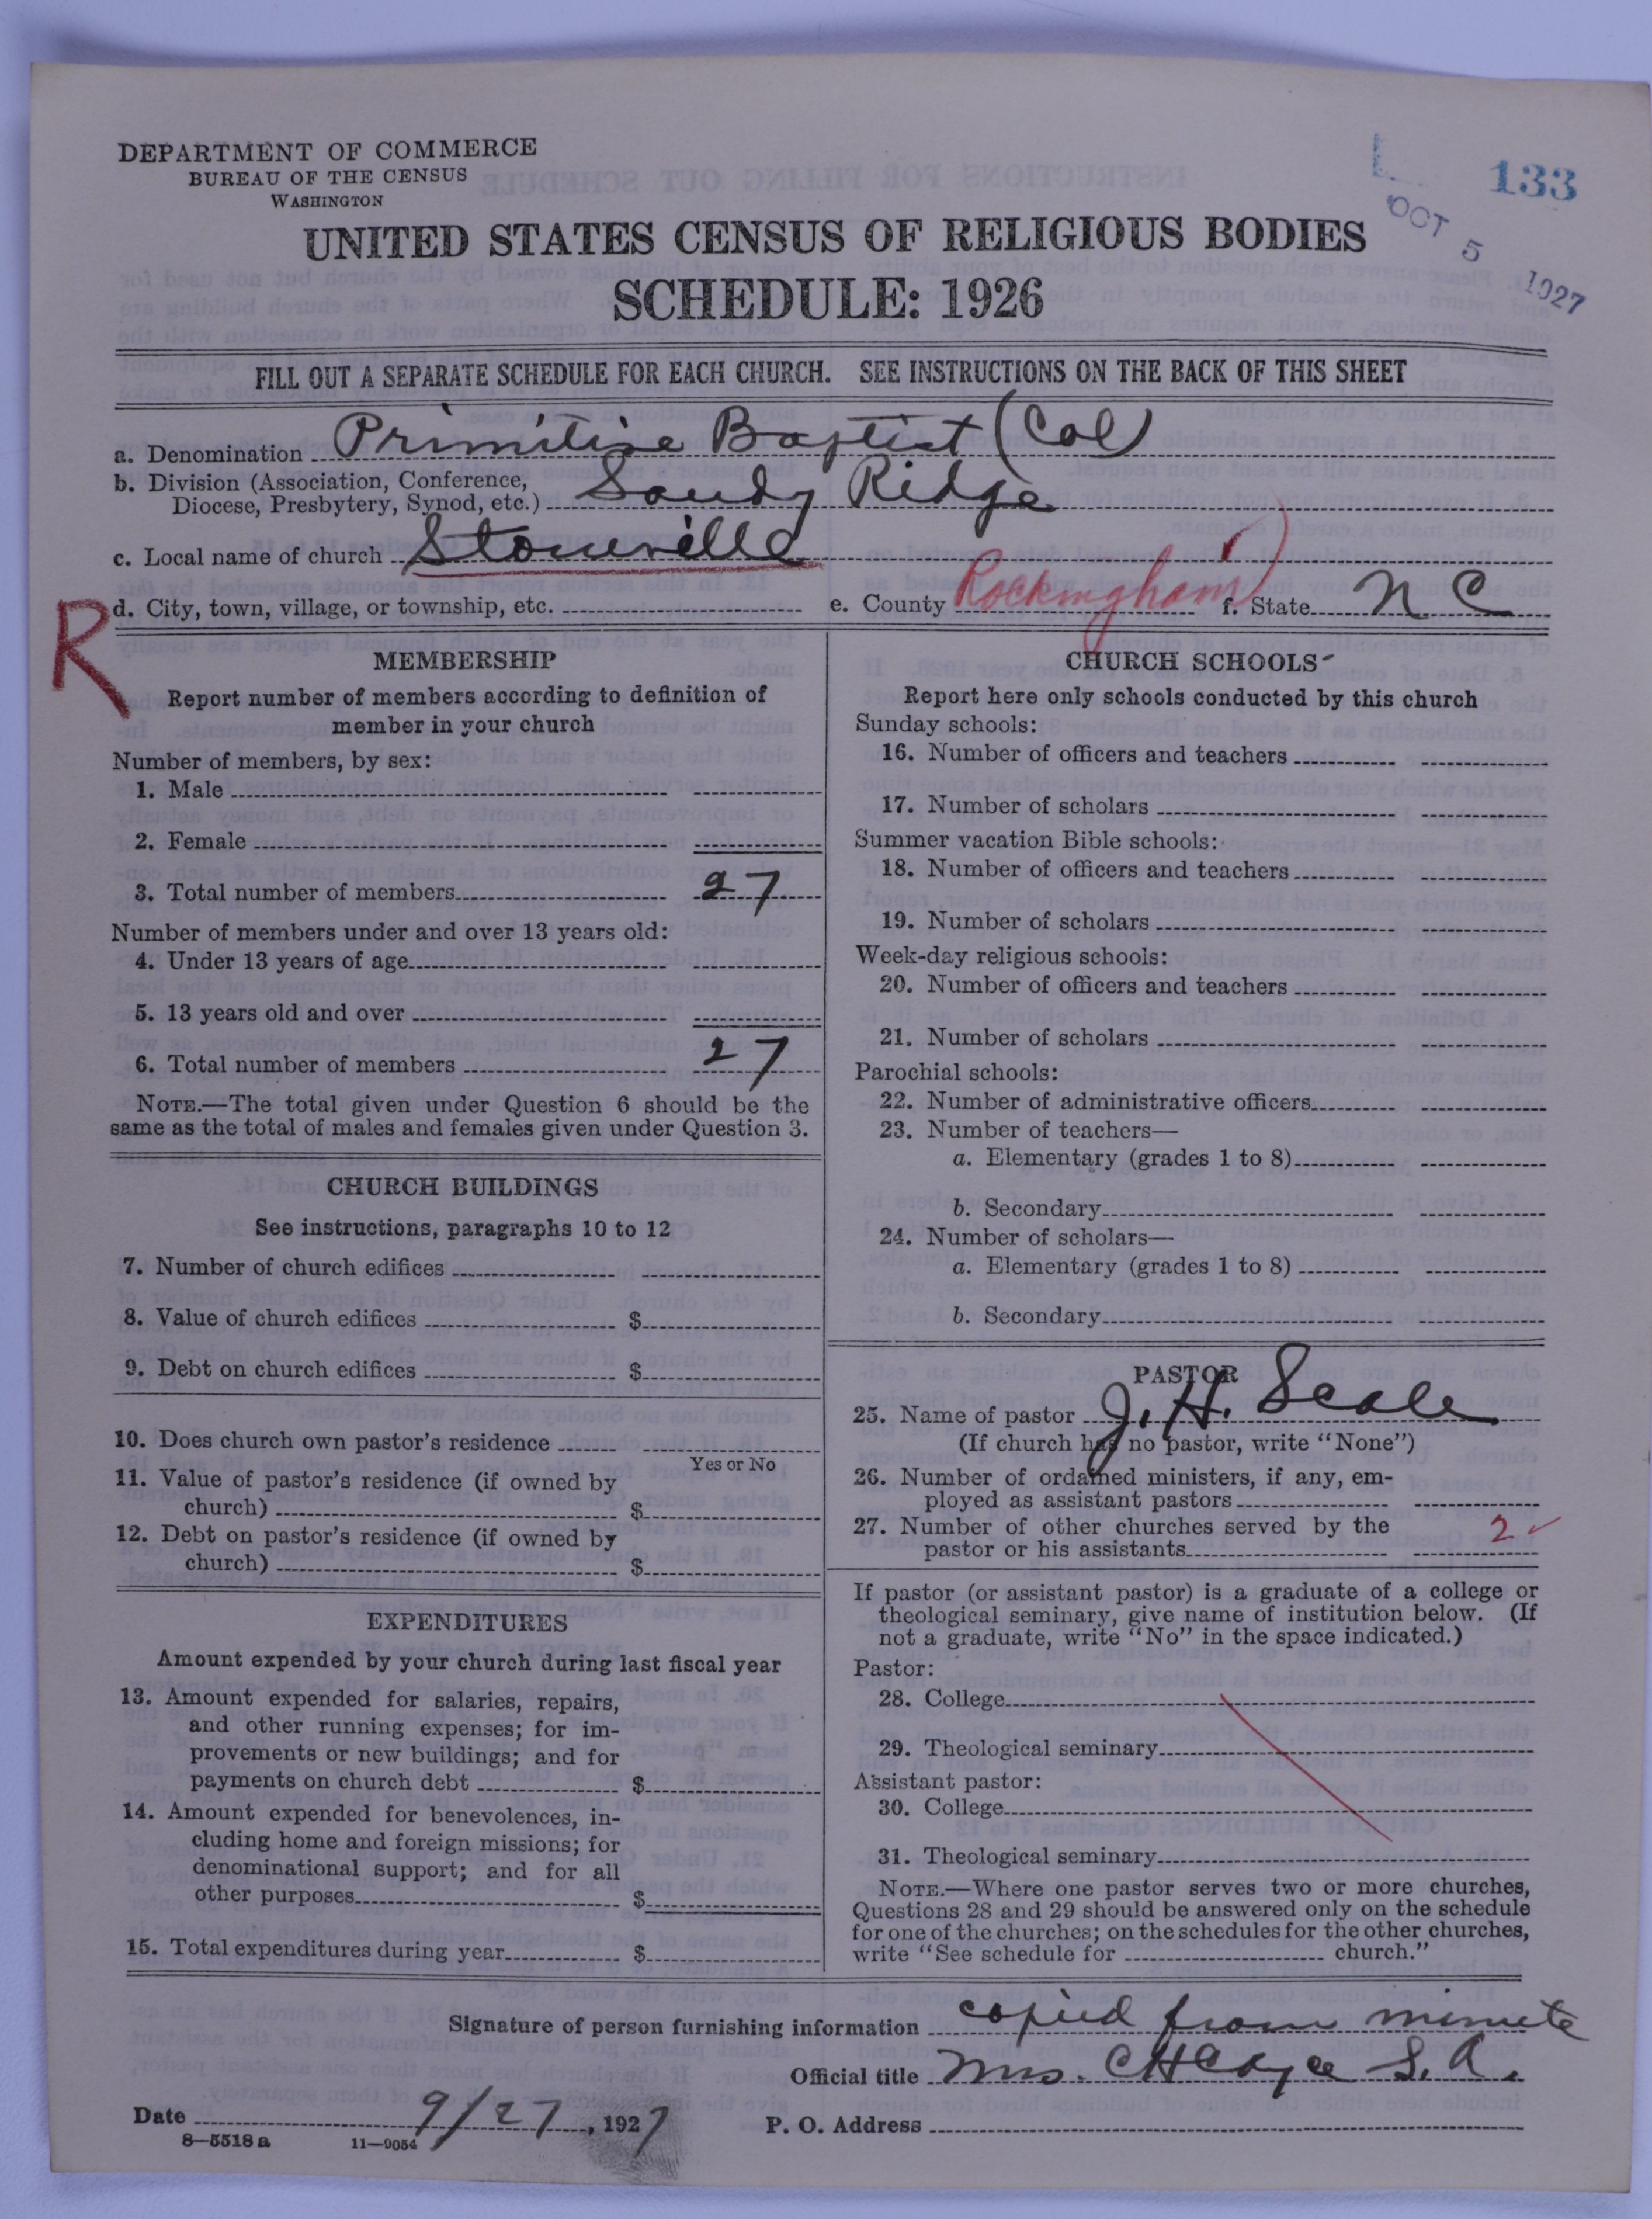 DEPARTMENT OF COMMERCE
BUREAU OF THE CENSUS
WASHINGTON
133
OCT 5 1927
UNITED STATES CENSUS OF RELIGIOUS BODIES
SCHEDULE: 1926
FILL OUT A SEPARATE SCHEDULE FOR EACH CHURCH. SEE INSTRUCTIONS ON THE BACK OF THIS SHEET
a. Denomination Primitive Baptist (Col)
b. Division (Association, Conference,
Diocese, Presbytery, Synod, etc.) Sandy Ridge
c. Local name of church Stoneville
R
d. City, town, village, or township, etc. e. County Rockingham f. State N C
MEMBERSHIP
Report number of members according to definition of
member in your church
Number of members, by sex:
1. Male
2. Female
3. Total number of members 27
Number of members under and over 13 years old:
4. Under 13 years of age
5. 13 years old and over
6. Total number of members 27
NOTE.—The total given under Question 6 should be the
same as the total of males and females given under Question 3.
CHURCH BUILDINGS
See instructions, paragraphs 10 to 12
7. Number of church edifices
8. Value of church edifices $
9. Debt on church edifices $
10. Does church own pastor's residence
Yes or No
11. Value of pastor's residence (if owned by
church) $
12. Debt on pastor's residence (if owned by
church) $
EXPENDITURES
Amount expended by your church during last fiscal year
13. Amount expended for salaries, repairs,
and other running expenses; for im-
provements or new buildings; and for
payments on church debt $
14. Amount expended for benevolences, in-
cluding home and foreign missions; for
denominational support; and for all
other purposes $
15. Total expenditures during year $
CHURCH SCHOOLS
Report here only schools conducted by this church
Sunday schools:
16. Number of officers and teachers
17. Number of scholars
Summer vacation Bible schools:
18. Number of officers and teachers
19. Number of scholars
Week-day religious schools:
20. Number of officers and teachers
21. Number of scholars
Parochial schools:
22. Number of administrative officers
23. Number of teachers—
a. Elementary (grades 1 to 8)
b. Secondary
24. Number of scholars—
a. Elementary (grades 1 to 8)
b. Secondary
PASTOR
25. Name of pastor J. H. Seale
(If church has no pastor, write "None")
26. Number of ordained ministers, if any, em-
ployed as assistant pastors
27. Number of other churches served by the
pastor or his assistants 2
If pastor (or assistant pastor) is a graduate of a college or
theological seminary, give name of institution below. (If
not a graduate, write "No" in the space indicated.)
Pastor:
28. College
29. Theological seminary
Assistant pastor:
30. College
31. Theological seminary
NOTE.—Where one pastor serves two or more churches,
Questions 28 and 29 should be answered only on the schedule
for one of the churches; on the schedules for the other churches,
write "See schedule for church."
Signature of person furnishing information copied from minute
Official title Mrs. C H Cayce S. A.
Date 9/27, 1927 P. O. Address
8—5518a 11—9054